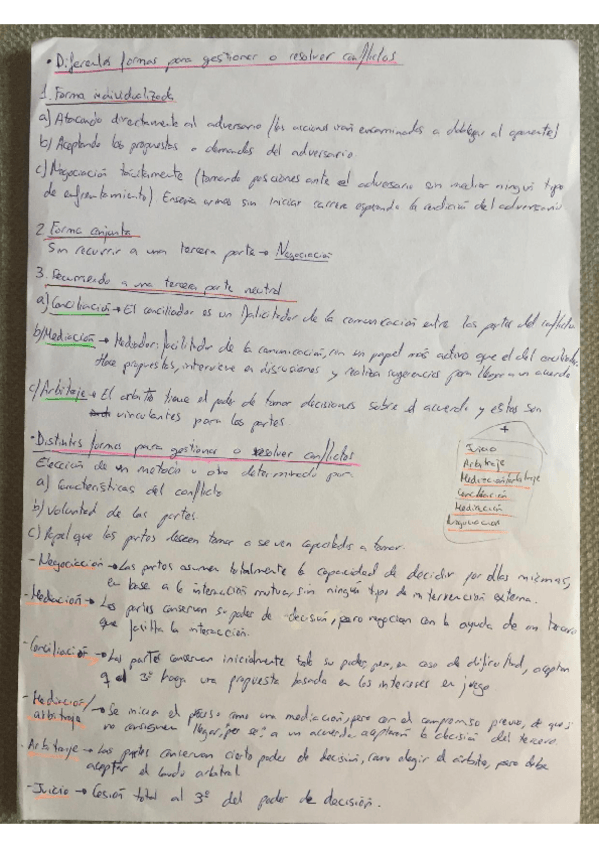 • Diferentes formas para gestionar o resolver conflictos
1. Forma individualizada
a) Atacando directamente al adversario (las acciones irán encaminadas a doblegar al oponente)
b) Aceptando las propuestas o demandas del adversario.
c) Negociación tácitamente (tomando posiciones ante el adversario sin mediar ningún tipo
de enfrentamiento) Enseña armas sin iniciar carrera esperando la rendición del adversario
2 Forma conjunta
Sin recurrir a una tercera parte → Negociación
3. Recurriendo a una tercera parte neutral
a) Conciliación → El conciliador es un facilitador de la comunicación entre las partes del conflicto
b) Mediación → Mediador: facilitador de la comunicación, con un papel más activo que el del conciliador.
Hace propuestas, interviene en discusiones y realiza sugerencias para llegar a un acuerdo
c) Arbitraje → El árbitro tiene el poder de tomar decisiones sobre el acuerdo y estas son
vinculantes para las partes.
• Distintas formas para gestionar o resolver conflictos
Elección de un método u otro determinado por:
a) Características del conflicto
b) Voluntad de las partes
c) Papel que las partes deseen tomar o se ven capacitadas a tomar.
+
Juicio
Arbitraje
Mediación/arbitraje
Conciliación
Mediación
Negociación
- Negociación → Las partes asumen totalmente la capacidad de decidir por ellas mismas,
en base a la interacción mutua, sin ningún tipo de intervención externa.
- Mediación → Las partes conservan su poder de decisión, pero negocian con la ayuda de un tercero
que facilita la interacción.
- Conciliación → Las partes conservan inicialmente todo su poder pero, en caso de dificultad, aceptan
q el 3º haga una propuesta basada en los intereses en juego
- Mediación/ → Se inicia el proceso como una mediación, pero con el compromiso previo, de que si
arbitraje no consiguen llegar, per se, a un acuerdo, aceptarán la decisión del tercero.
- Arbitraje → Las partes conservan cierto poder de decisión, como elegir el árbitro, pero debe
aceptar el laudo arbitral
- Juicio → Cesión total al 3º del poder de decisión.